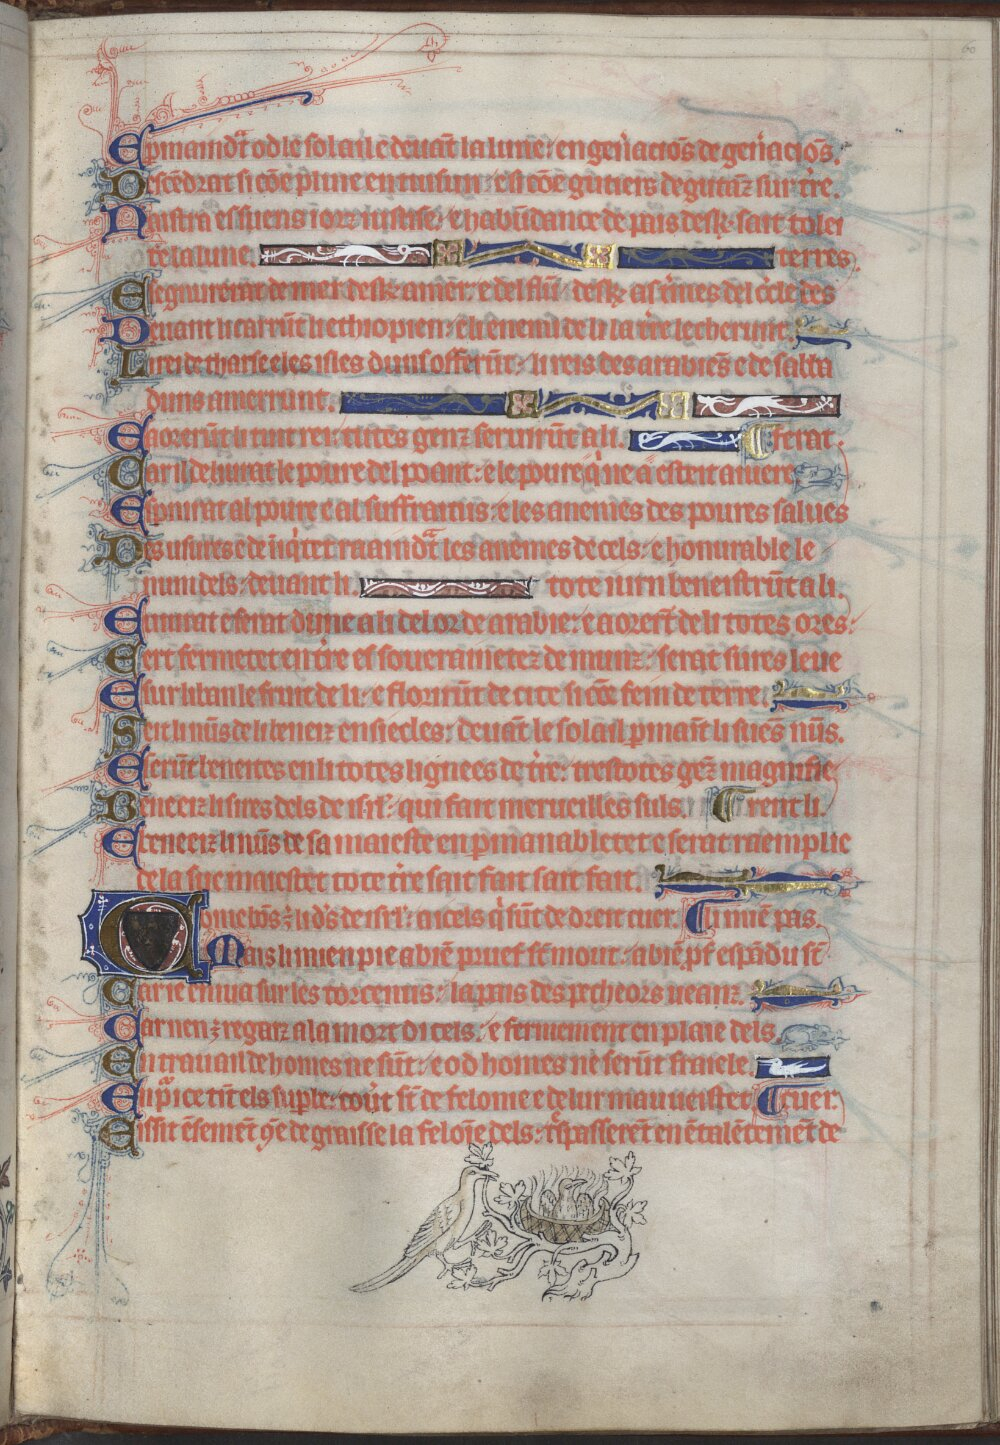 E pmaindr̄t od le solail e deuāt la lune: en gen̄aciōs de gen̄aciōs.
Descēdrat si cōe pluie en tuisun: e si cōe gutiers degutanz sur tr̄e.
Naistra es suens iorz iustise: e habūdance de pais desk̄ sait tolei
te la lune. terres.
E segnurerat de mer desk̄ a mer: e del flū desk̄ as t̄mes del cercle des
Deuant li carrūt li ethiopien: e li enemi de li la tr̄e lecherunt.
Li rei de tharse e les isles duns offerūt: li reis des arabiēs e de salta
duns amerrunt.
E aorerūt li tuit rei: tutes genz seruirūt a li. ferat.
Car il deliurat le poure del poant: e le poure qi ne a esteit aiuere
Espairat al poure e al suffraitus: e les anemes des poures salues
Des usures e de iniqitet raaindr̄t les anemes de cels: e honurable le
num dels deuant li. tote iurn beneistrūt a li.
E uiurat e serat dune a li del or de arabie: e aorert̄ de li totes ores:
E ert fermetet en tr̄e es souerainetez de munz: serat sures leue
E sur liban le fruit de li: e florirūt de cite si cōe fein de terre.
Seit li nūs de li beneiz en siecles: deuāt le solail pmaīt li suēs nūs.
E serūt beneites en li totes lignees de tr̄e: trestotes gēz magnifie
Beneeiz li sires deus de isrl̄: qui fait merueilles suls. rent li.
E beneeiz li nūs de sa maieste en pmanabletet e serat raemplie
de la sue maiestet tote tr̄e sait fait sait fait.
Come bōs ē li ds̄ de isrl̄: a icels qi sūt de dreit cuer. Ti miē pas.
Mais li mien pie a biē pruef st̄ mout: a biē pf̄ espādu st̄
Car ie enuia sur les torcenus: la pais des pecheors ueanz.
Car nen ē regarz a la mort di cels: e fermement en plaie dels.
En trauail de homes ne sūt: e od homes ne serūt flaiele.
En pice tūt els suple: couīt st̄ de felonie e de lur mauueistet cuer.
Eissit ēsemēt cōe de graisse la felonīe dels: trespasserēt en ētalētemēt de